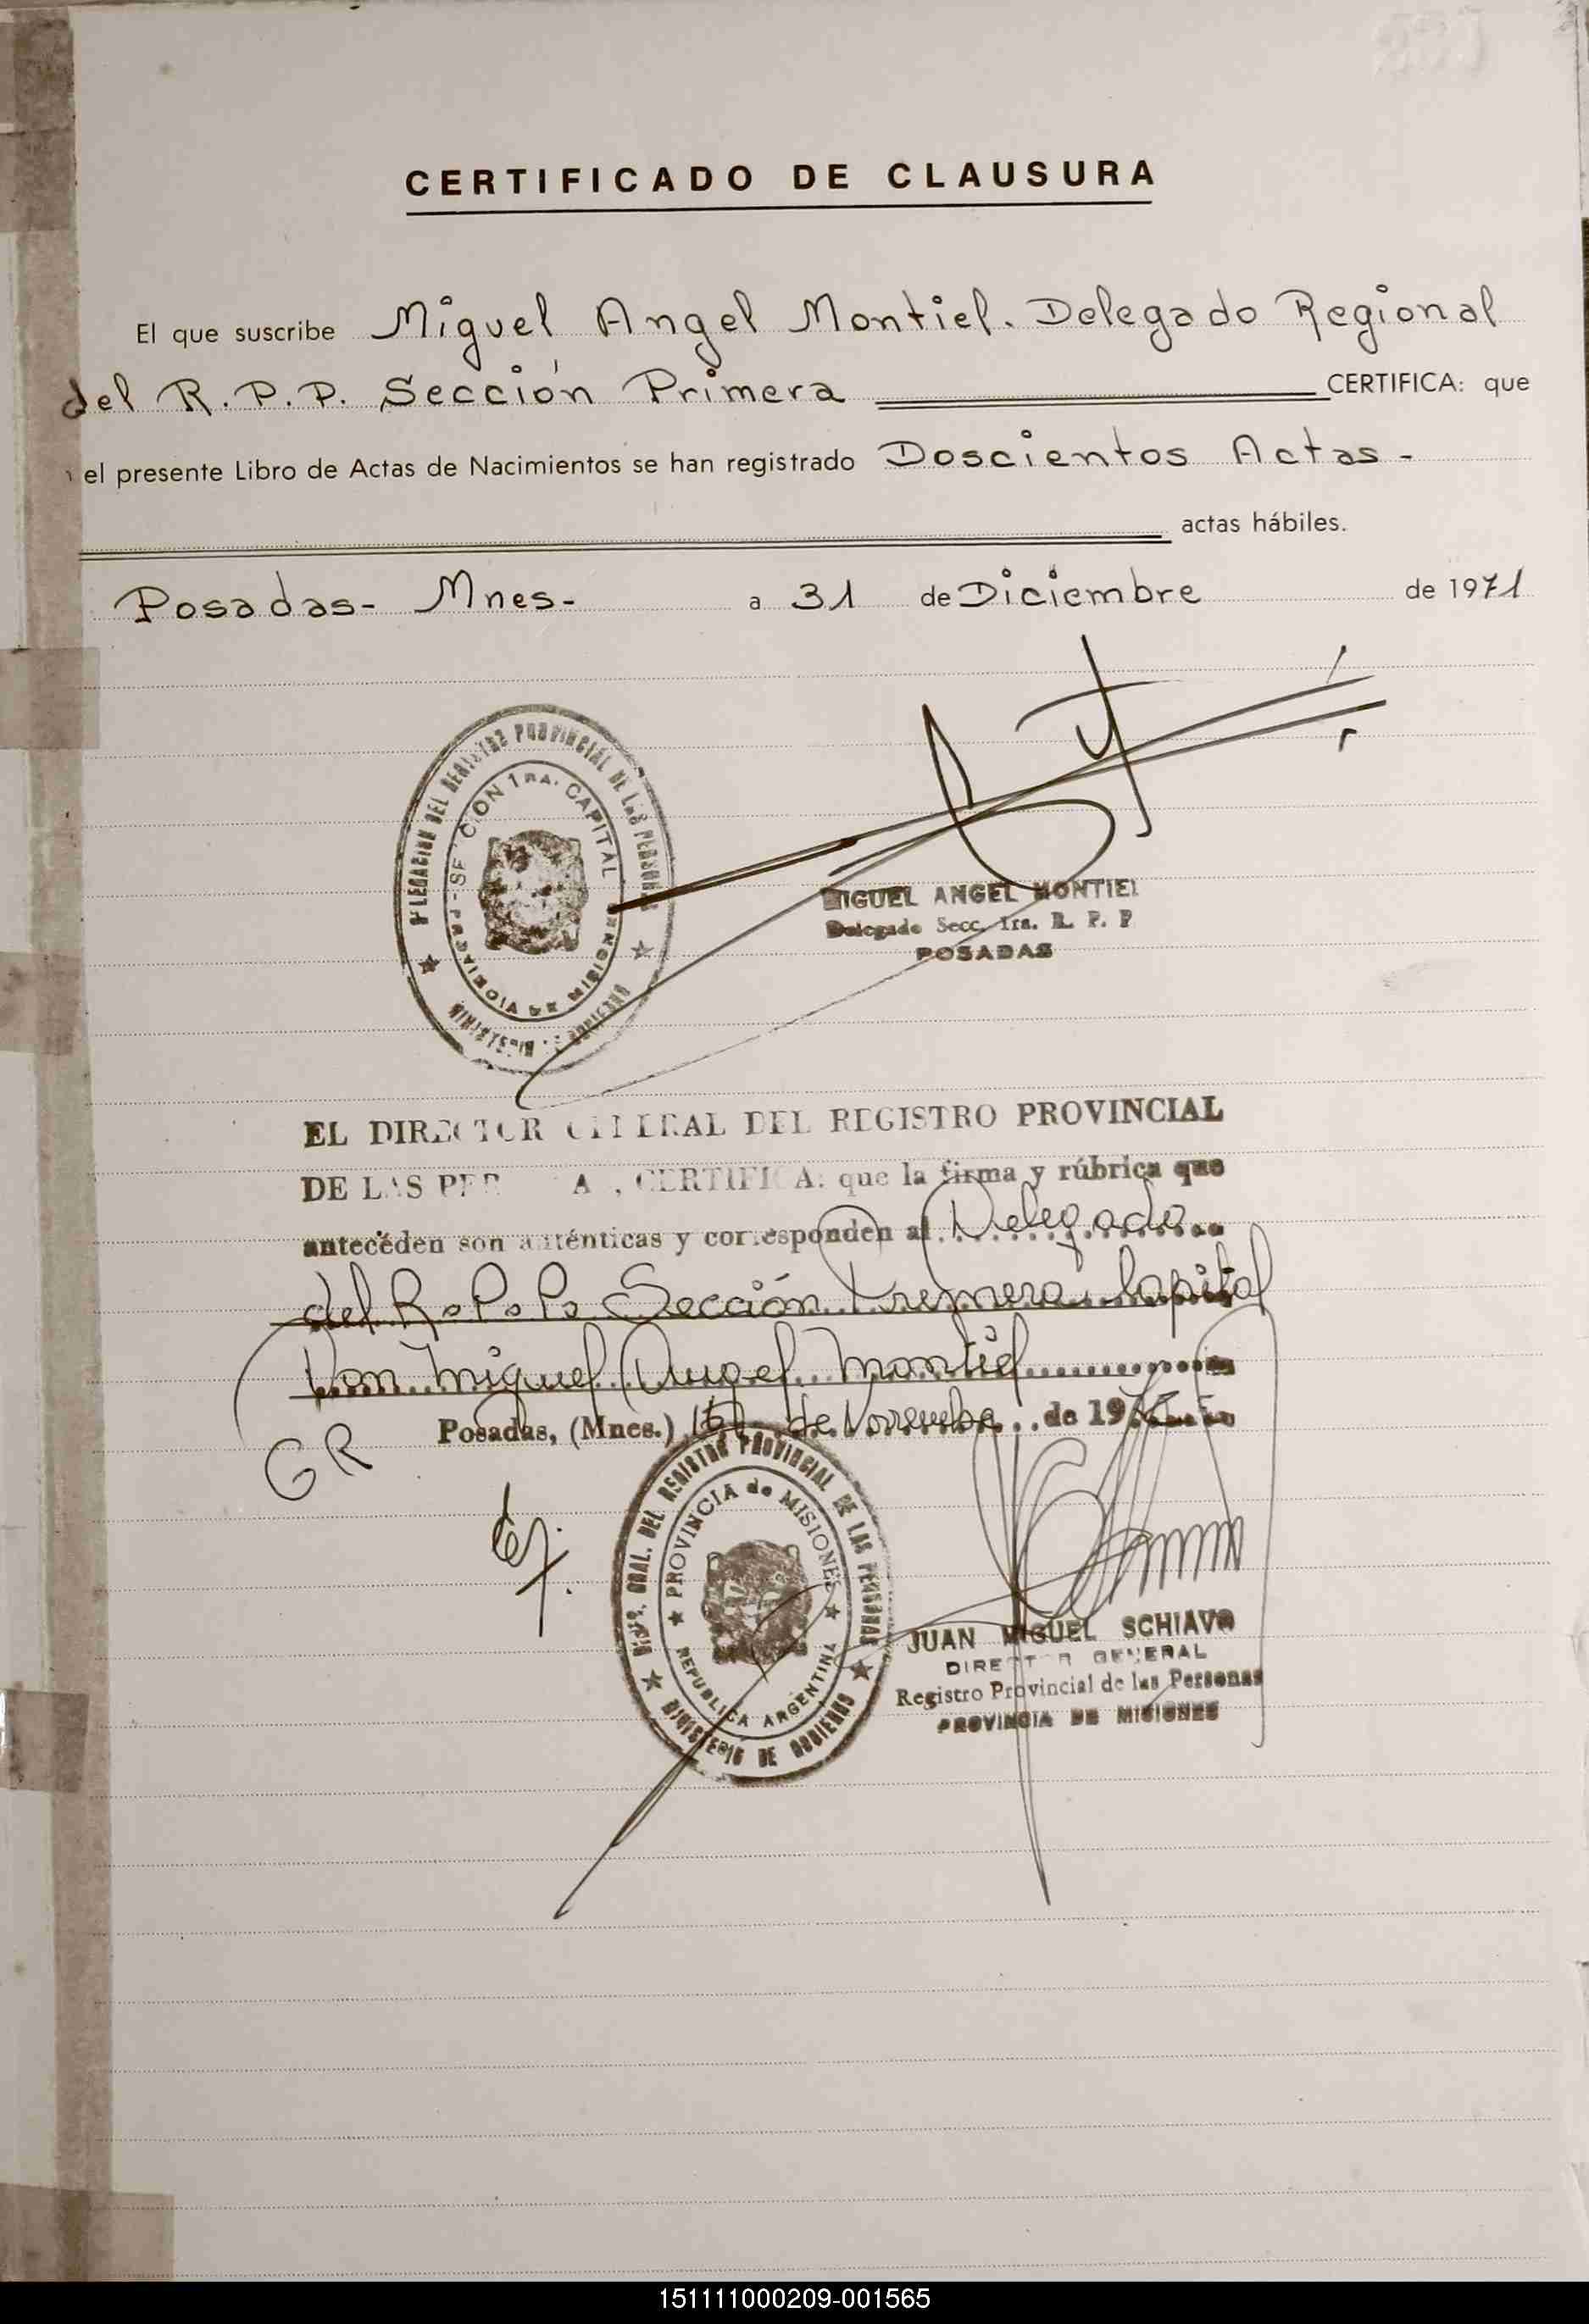 CERTIFICADO DE CLAUSURA
El que suscribe Miguel Angel Montiel. Delegado Regional
del R.P.P. Sección Primera CERTIFICA: que
el presente Libro de Actas de Nacimientos se han registrado Doscientos Actas -
actas hábiles.
Posadas- Mnes- a 31 de Diciembre de 1971
DELEGACION DEL REGISTRO PROVINCIAL DE LAS PERSONAS
SECCION 1RA. CAPITAL
PROVINCIA DE MISIONES
MIGUEL ANGEL MONTIEL
Delegado Secc. 1ra. R. P. P
POSADAS
EL DIRECTOR GENERAL DEL REGISTRO PROVINCIAL
DE LAS PER A , CERTIFICA: que la firma y rúbrica que
anteceden son auténticas y corresponden al Delegado
del R.P.P. Sección Primera Capital
Don Miguel Angel Montiel
Posadas, (Mnes.) de Noviembre de 19
GR
DIREC. GRAL. DEL REGISTRO PROVINCIAL DE LAS PERSONAS
PROVINCIA de MISIONES
REPUBLICA ARGENTINA
MINISTERIO DE GOBIERNO
JUAN MIGUEL SCHIAVO
DIRECTOR GENERAL
Registro Provincial de las Personas
PROVINCIA DE MISIONES
151111000209-001565